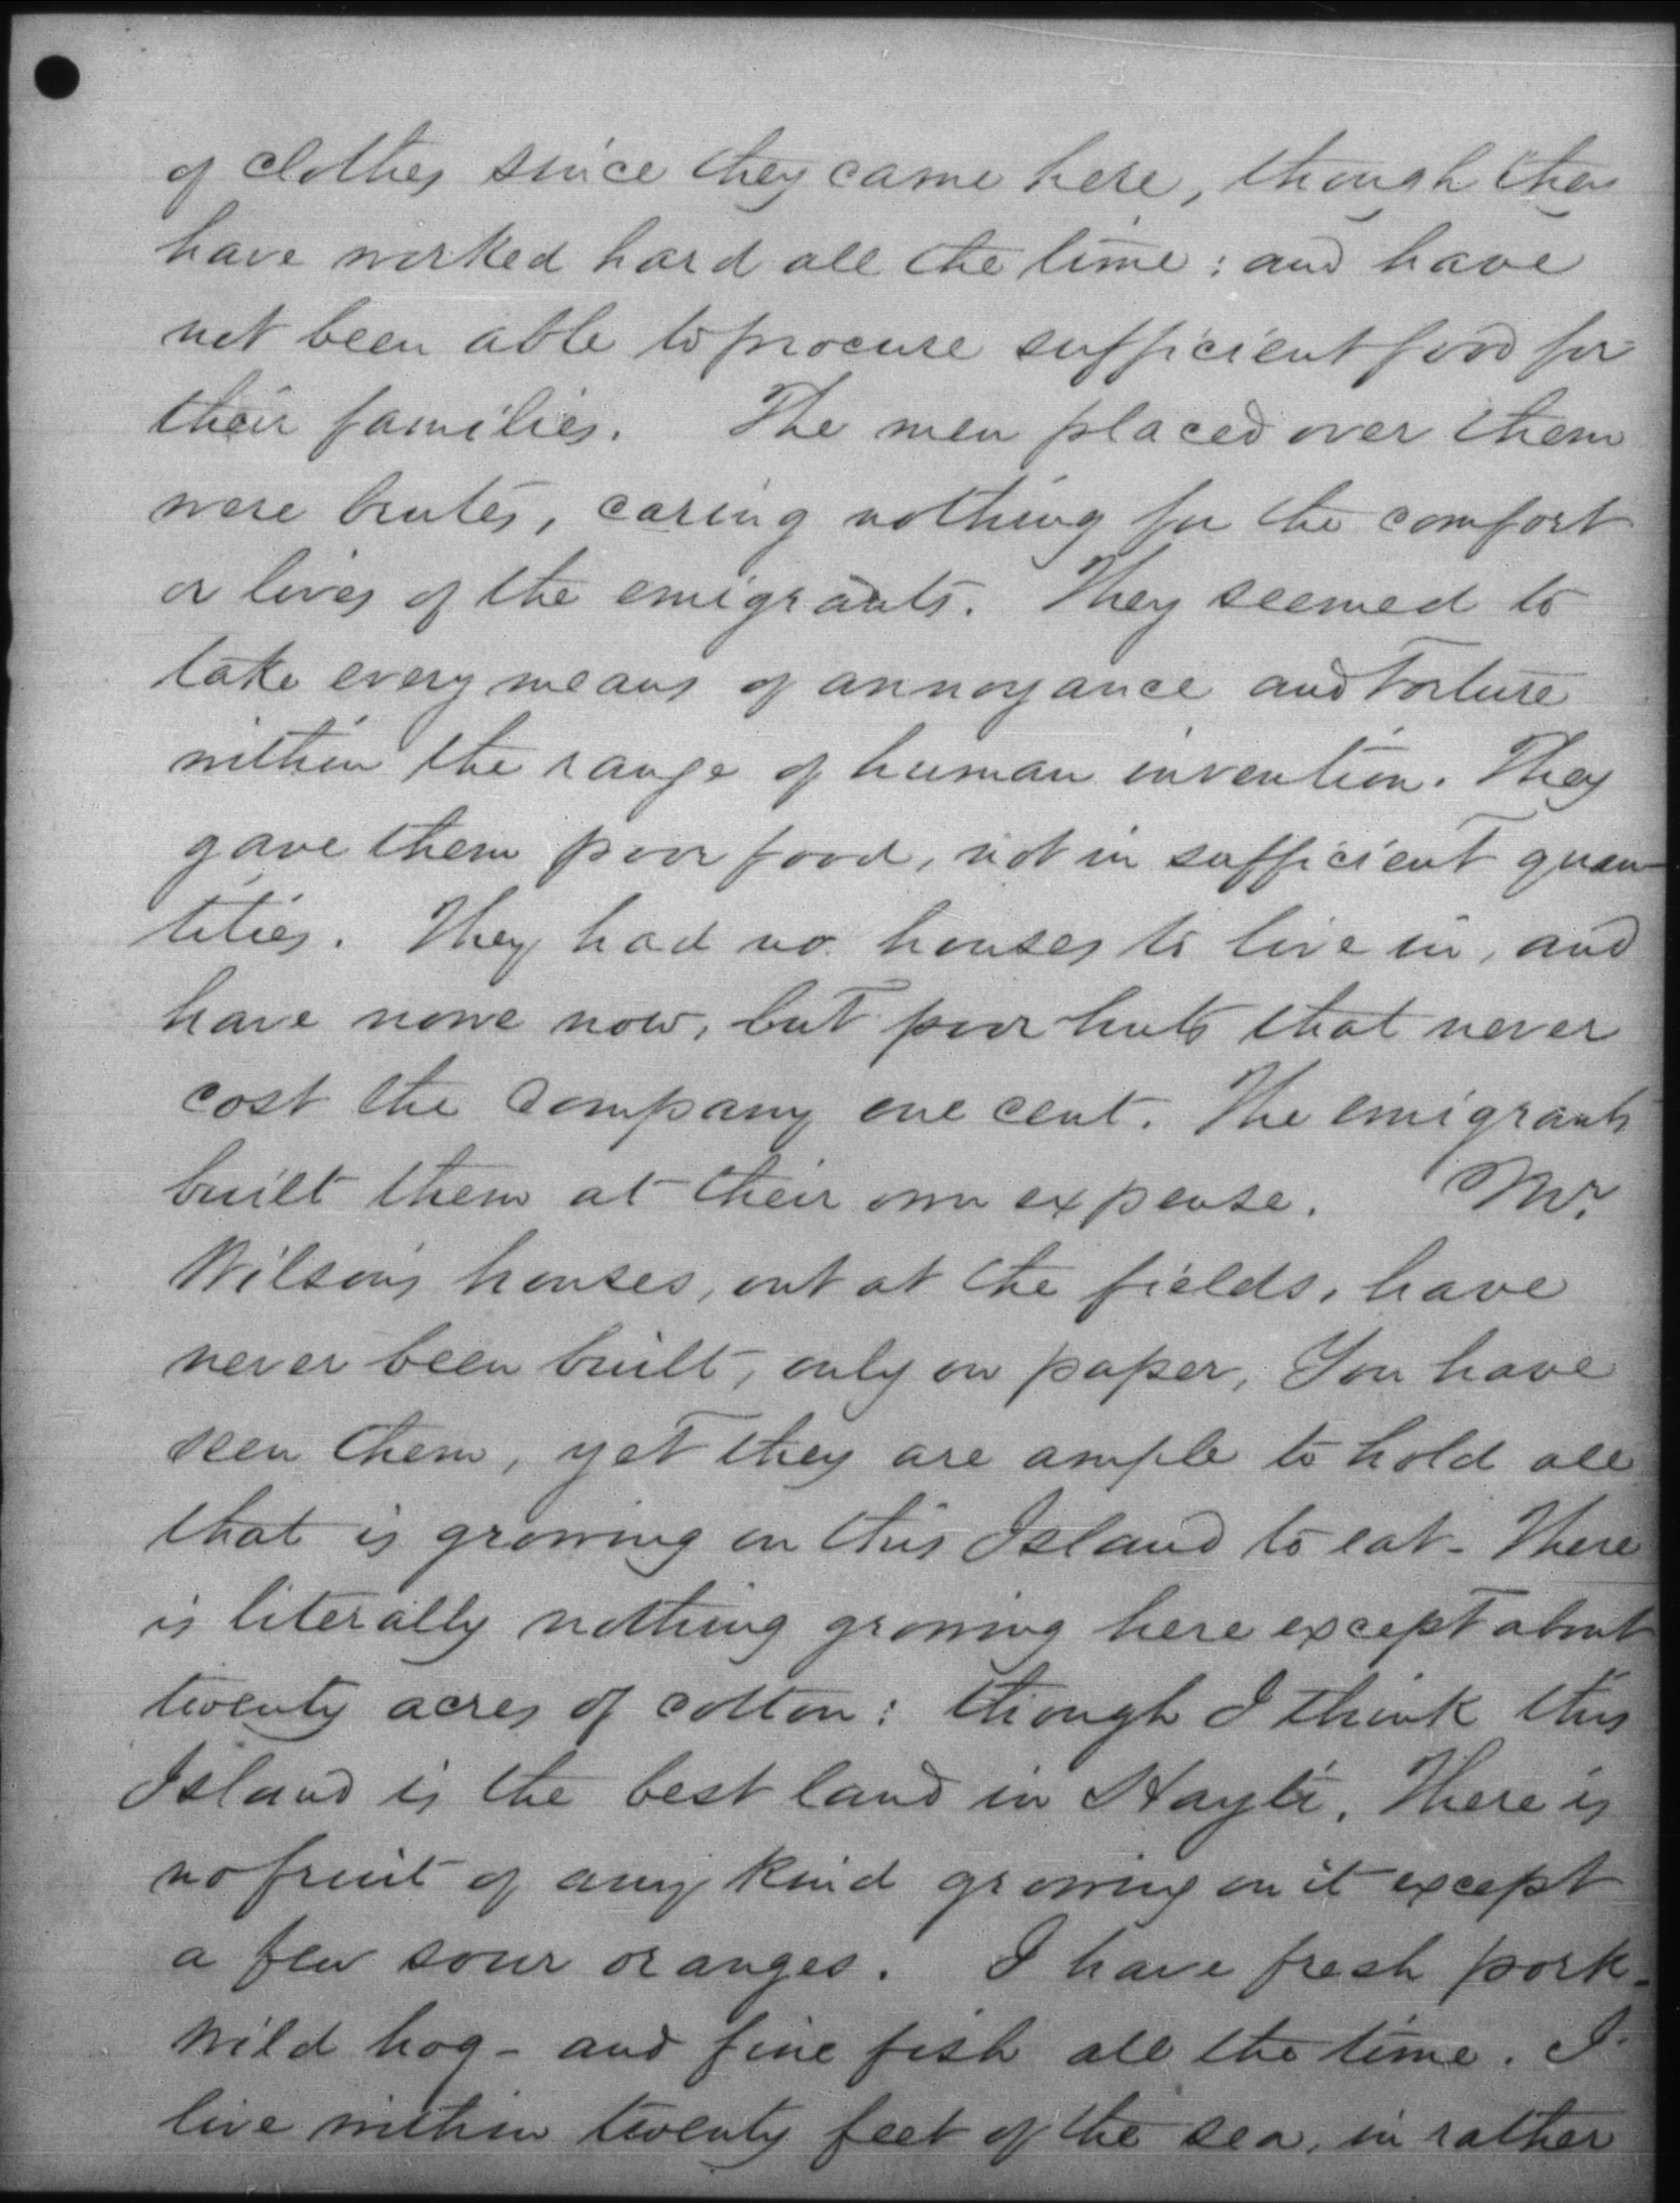 of clothes since they came here, though they
have worked hard all the time: and have
not been able to procure sufficient food for
their families. The men placed over them
were brutes, caring nothing for the comfort
or lives of the emigrants. They seemed to
take every means of annoyance and torture
within the range of human invention. They
gave them poor food, not in sufficient quan-
tities. They had no houses to live in, and
have none now, but poor huts that never
cost the Company one cent. The emigrants
built them at their own expense. Mr.
Wilson's houses, out at the fields, have
never been built, only on paper, You have
seen them, yet they are ample to hold all
that is growing on this Island to eat - There
is literally nothing growing here except about
twenty acres of cotton: though I think this
Island is the best land in Hayti. There is
no fruit of any kind growing on it except
a few sour oranges. I have fresh pork -
wild hog - and fine fish all the time. I
live within twenty feet of the sea, in rather